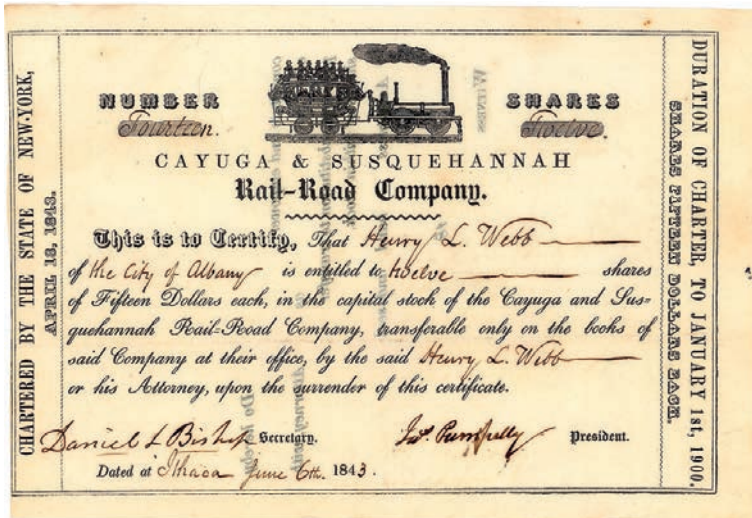 CHARTERED BY THE STATE OF NEW-YORK,
APRIL 18, 1843.
NUMBER
Fourteen.
SHARES
Twelve.
CAYUGA & SUSQUEHANNAH
Rail-Road Company.
This is to Certify, That Henry L. Webb
of the City of Albany is entitled to twelve shares
of Fifteen Dollars each, in the capital stock of the Cayuga and Sus-
quehannah Rail-Road Company, transferable only on the books of
said Company at their office, by the said Henry L. Webb
or his Attorney, upon the surrender of this certificate.
Daniel L Bishop Secretary. Jas. Pumpelly President.
Dated at Ithaca June 6th. 1843.
DURATION OF CHARTER, TO JANUARY 1st, 1900.
SHARES FIFTEEN DOLLARS EACH.
WITNESS